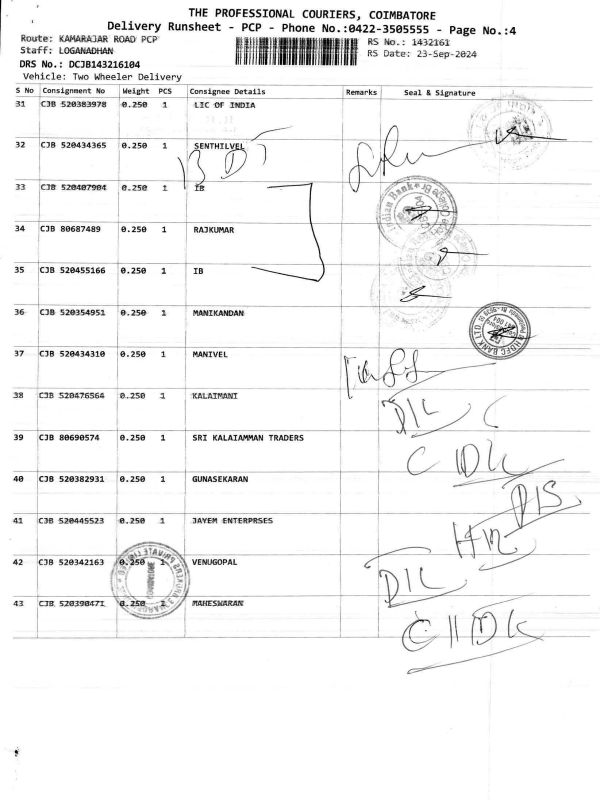 THE PROFESSIONAL COURIERS, COIMBATORE
Delivery Runsheet - PCP - Phone No.:0422-3505555 - Page No.:4
Route: KAMARAJAR ROAD PCP
RS No.: 1432161
Staff: LOGANADHAN
RS Date: 23-Sep-2024
DRS No.: DCJB143216104
Vehicle: Two Wheeler Delivery
S No Consignment No Weight PCS Consignee Details Remarks Seal & Signature
31 CJB 520383978 0.250 1 LIC OF INDIA
32 CJB 520434365 0.250 1 SENTHILVEL
33 CJB 520407904 0.250 1 IB
Indian Bank
34 CJB 80687489 0.250 1 RAJKUMAR
35 CJB 520455166 0.250 1 IB
36 CJB 520354951 0.250 1 MANIKANDAN
HDFC BANK LTD
37 CJB 520434310 0.250 1 MANIVEL
38 CJB 520476564 0.250 1 KALAIMANI
39 CJB 80690574 0.250 1 SRI KALAIAMMAN TRADERS
40 CJB 520382931 0.250 1 GUNASEKARAN
41 CJB 520445523 0.250 1 JAYEM ENTERPRSES
42 CJB 520342163 0.250 1 VENUGOPAL
43 CJB 520390471 0.250 1 MAHESWARAN